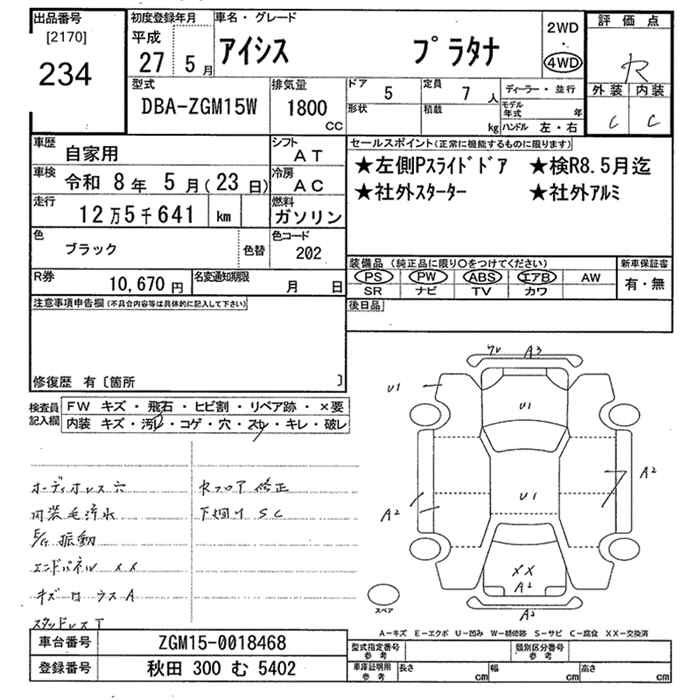 出品番号
[2170]
234
初度登録年月
平成
27 5月
車名・グレード
アイシス プラタナ
2WD
・
4WD
評価点
R
外装 内装
C C
型式
DBA-ZGM15W
排気量
1800
CC
ドア 5
形状
定員 7 人
積載 kg
ディーラー・並行
モデル年式 年
ハンドル 左・右
車歴
自家用
シフト
AT
車検 令和 8年 5月(23日)
冷房
AC
走行 12万5千641 km
燃料
ガソリン
色
ブラック
色替
色コード
202
セールスポイント(正常に機能するものに限ります)
★左側Pスライドドア ★検R8.5月迄
★社外スターター ★社外アルミ
R券
10,670円
名変通知期限
月 日
装備品(純正品に限り○をつけてください)
PS PW ABS エアB AW
SR ナビ TV カワ
新車保証書
有・無
後日品
注意事項申告欄(不具合内容等は具体的に記入して下さい)
修復歴 有〔箇所 〕
検査員記入欄
FW キズ・飛石・ヒビ割・リペア跡・×要
内装 キズ・汚レ・コゲ・穴・スレ・キレ・破レ
オーディオレス穴
内装毛汚れ
E/G振動
エンドパネルXX
キズ凹ウスA
スタッドレスT
Rフロア修正
下廻りSC
ワレ A3
U1
U1
U1
A2
A2
XX
A2
A2
スペア
A−キズ E−エクボ U−凹み W−補修跡 S−サビ C−腐食 XX−交換済
車台番号 ZGM15-0018468
登録番号 秋田 300 む 5402
型式指定番号
参考
類別区分番号
参考
車庫証明用
参考
長さ cm
幅 cm
高さ cm